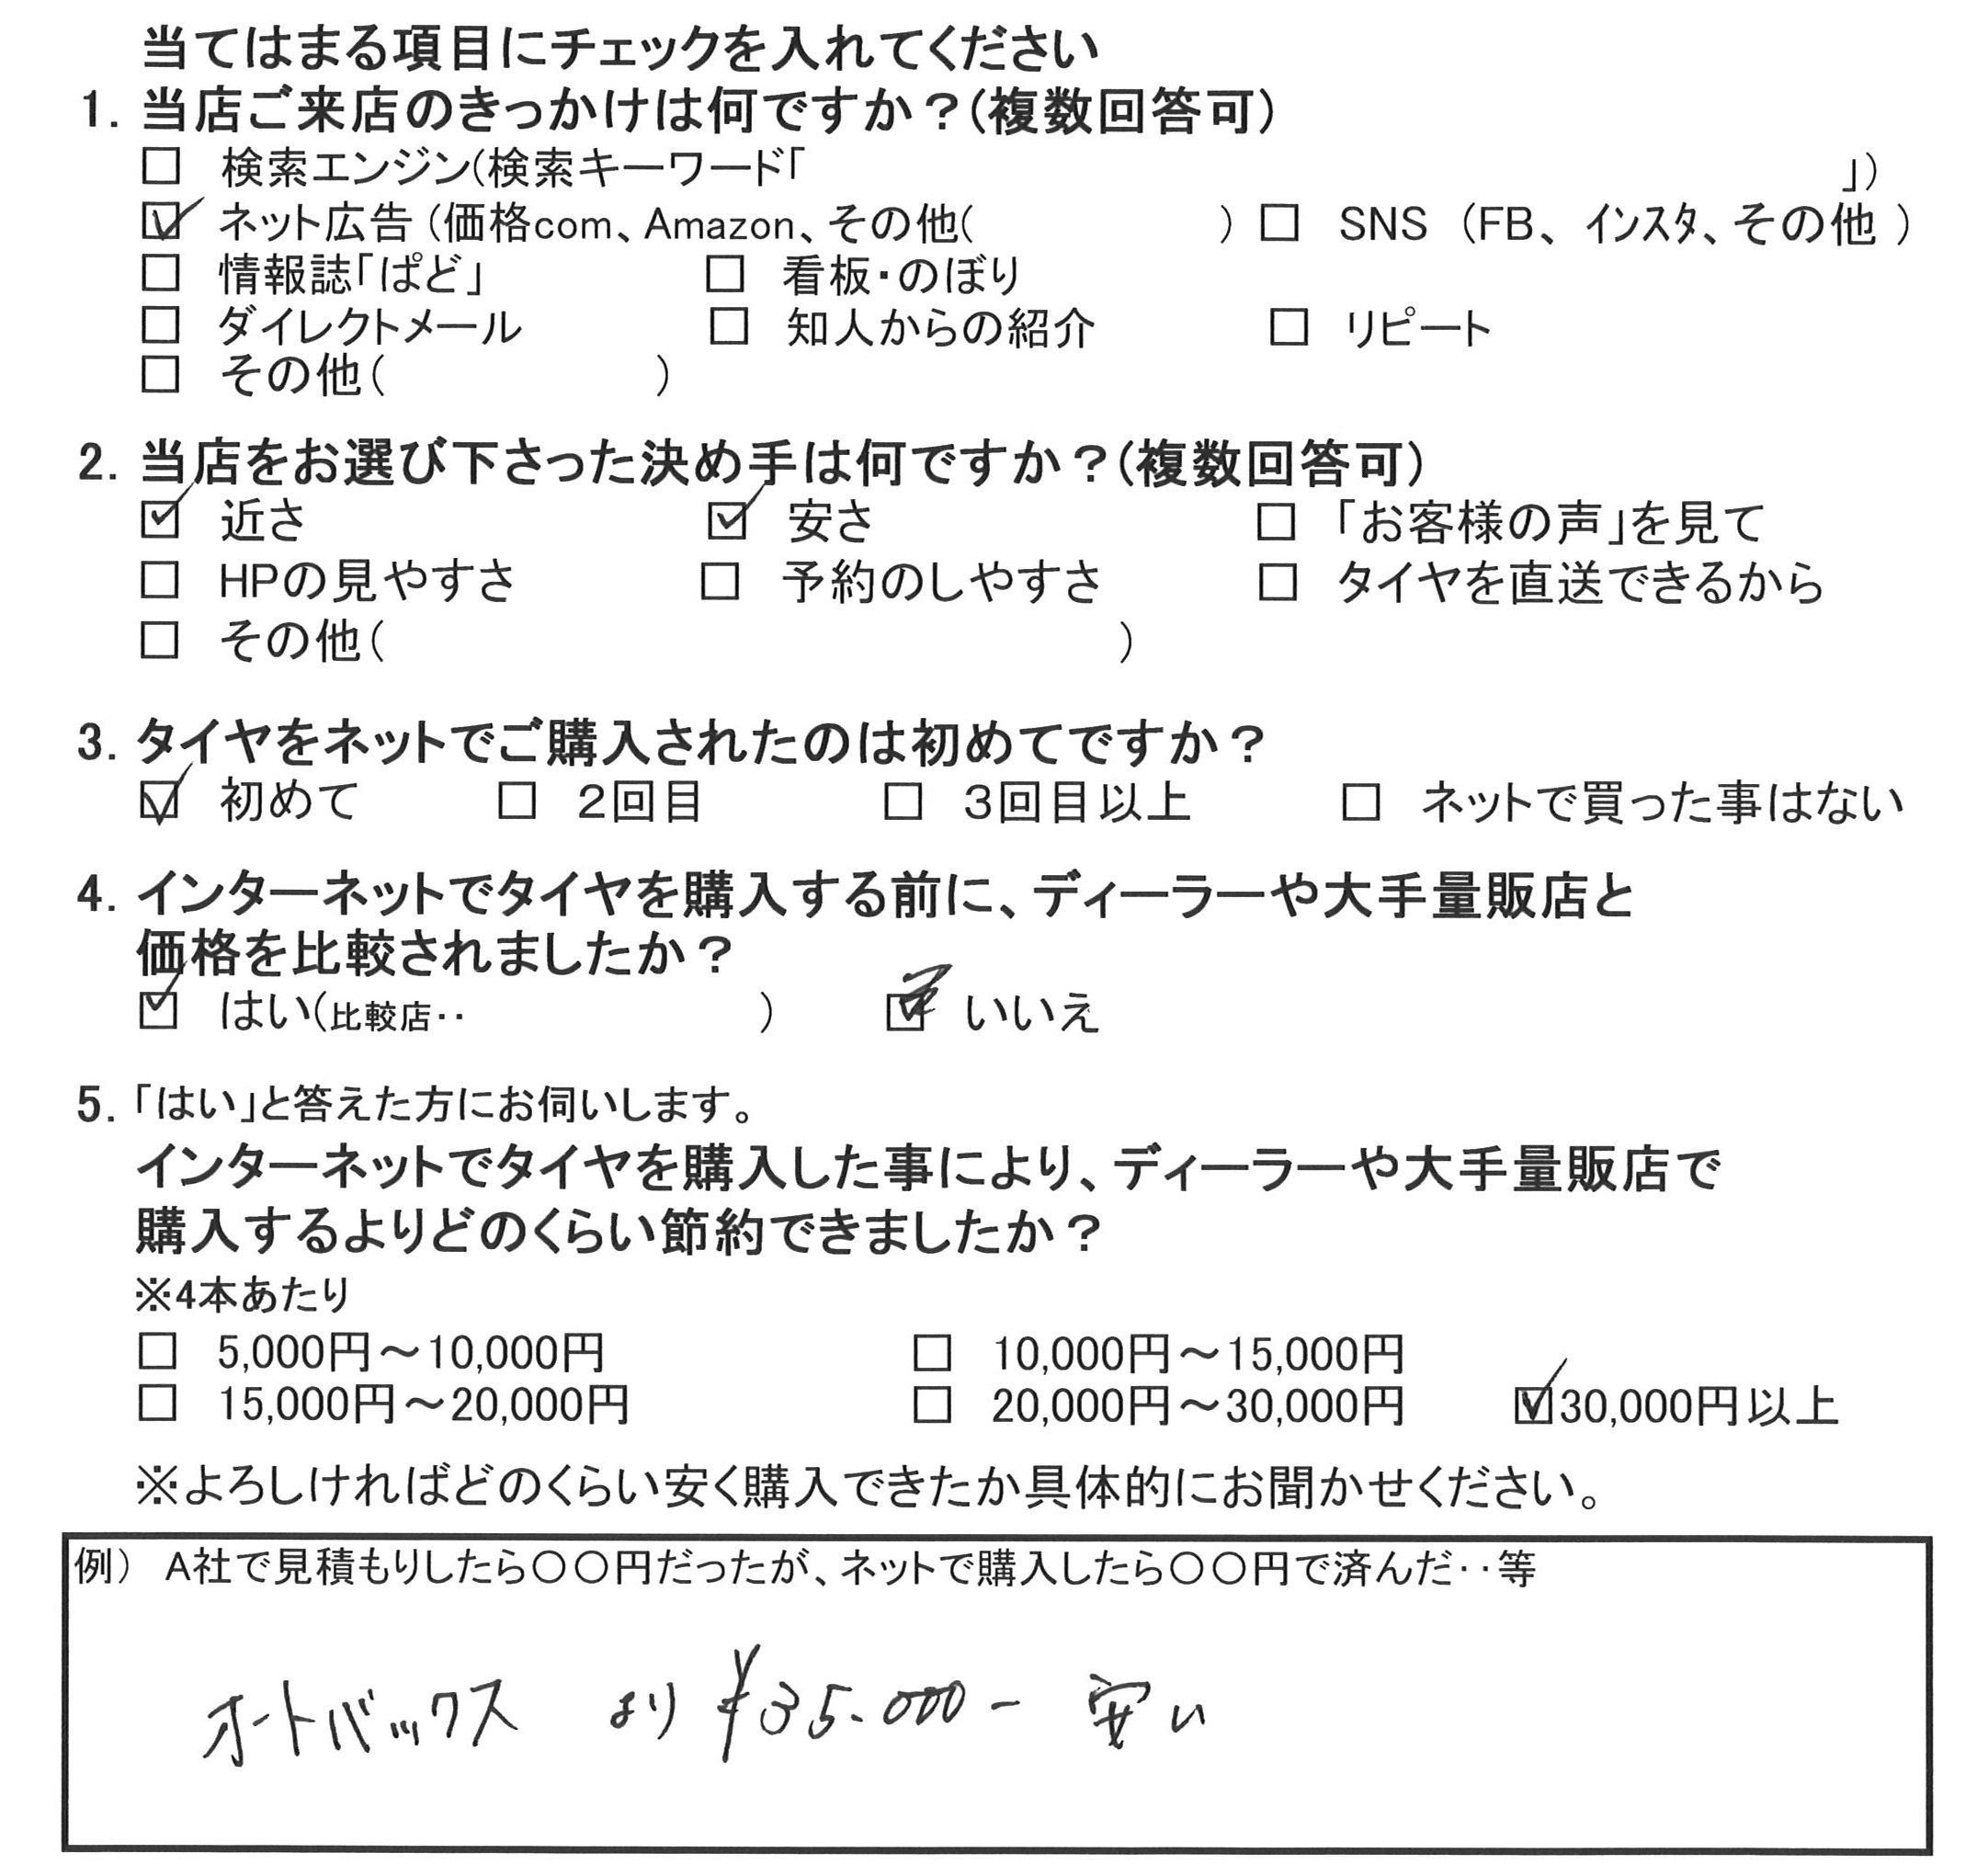 当てはまる項目にチェックを入れてください
1. 当店ご来店のきっかけは何ですか？(複数回答可)
□ 検索エンジン(検索キーワード「 」)
☑ ネット広告 (価格com、Amazon、その他( ) □ SNS (FB、インスタ、その他 )
□ 情報誌「ぱど」 □ 看板・のぼり
□ ダイレクトメール □ 知人からの紹介 □ リピート
□ その他( )
2. 当店をお選び下さった決め手は何ですか？(複数回答可)
☑ 近さ ☑ 安さ □ 「お客様の声」を見て
□ HPの見やすさ □ 予約のしやすさ □ タイヤを直送できるから
□ その他( )
3. タイヤをネットでご購入されたのは初めてですか？
☑ 初めて □ 2回目 □ 3回目以上 □ ネットで買った事はない
4. インターネットでタイヤを購入する前に、ディーラーや大手量販店と
価格を比較されましたか？
☑ はい(比較店‥ ) ☑ いいえ
5. 「はい」と答えた方にお伺いします。
インターネットでタイヤを購入した事により、ディーラーや大手量販店で
購入するよりどのくらい節約できましたか？
※4本あたり
□ 5,000円～10,000円 □ 10,000円～15,000円
□ 15,000円～20,000円 □ 20,000円～30,000円 ☑ 30,000円以上
※よろしければどのくらい安く購入できたか具体的にお聞かせください。
例） A社で見積もりしたら〇〇円だったが、ネットで購入したら〇〇円で済んだ‥等
オートバックス より ¥35.000- 安い